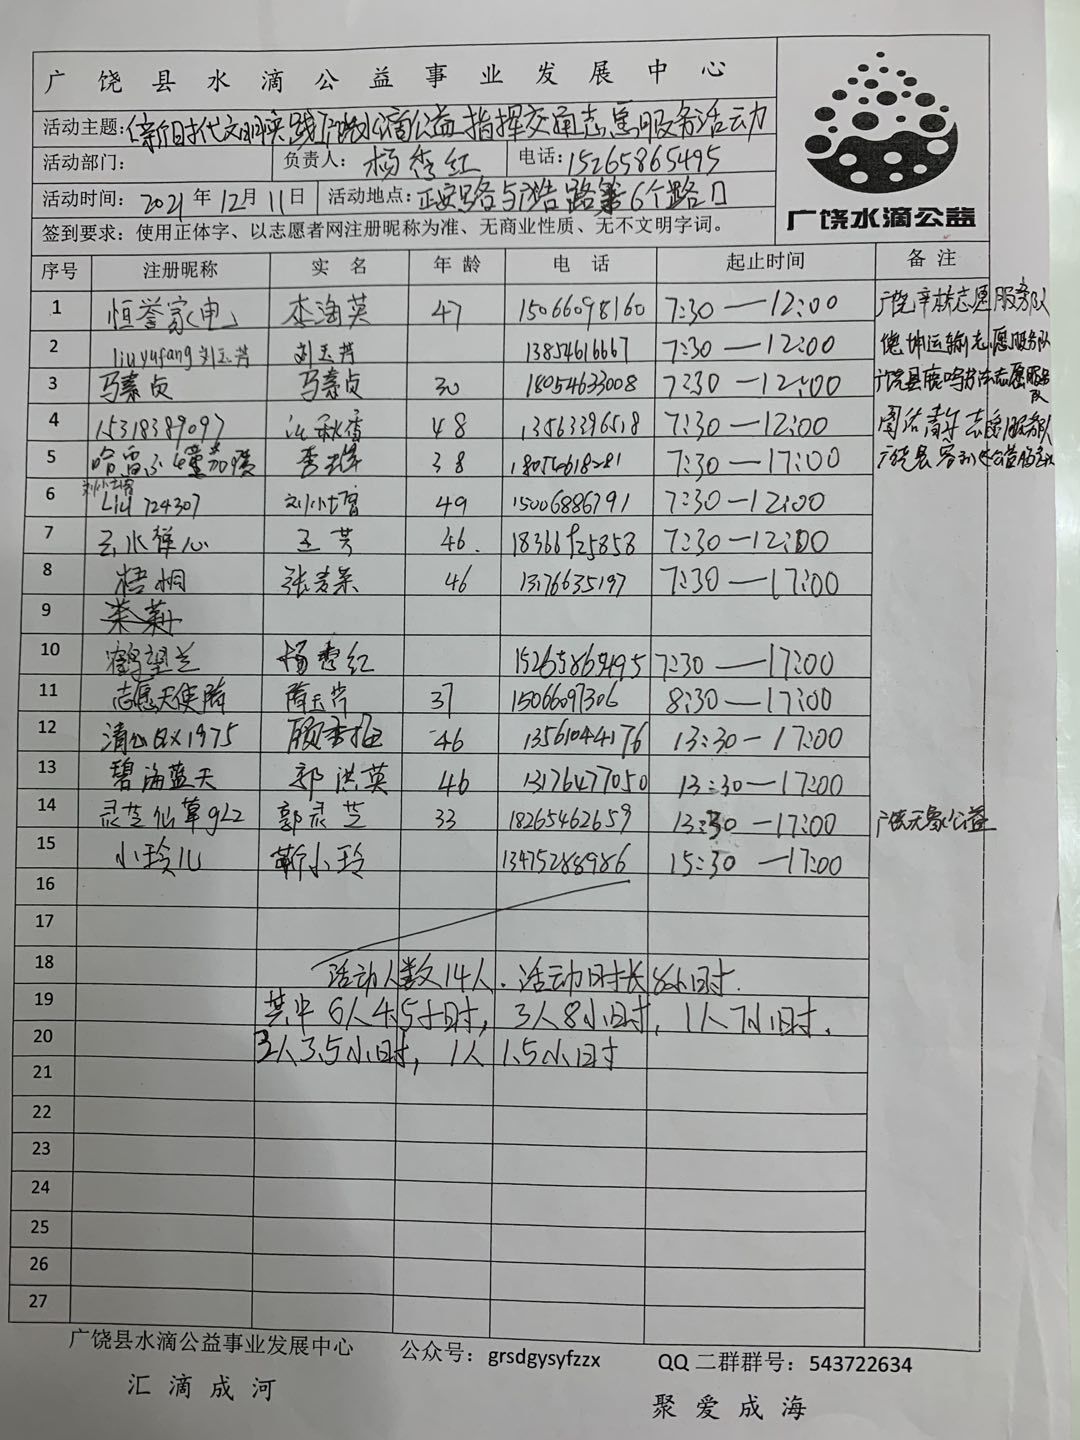 广饶县水滴公益事业发展中心
活动主题:《新时代文明实践》广饶水滴公益指挥交通志愿服务活动
活动部门: 负责人: 杨秀红 电话: 15265865495
活动时间: 2021年12月11日 活动地点: 正安路与 路第6个路口
签到要求: 使用正体字、以志愿者网注册昵称为准、无商业性质、无不文明字词。
广饶水滴公益
序号 注册昵称 实 名 年 龄 电 话 起止时间 备 注
1 恒誉家(电) 李海英 47 15066098160 7:30—12:00 志愿服务队
2 liuyufang刘玉芳 刘玉芳 13854616667 7:30—12:00 德坤运输志愿服务队
3 马素贞 马素贞 30 18054633008 7:30—12:00 广饶县鹿鸣 志愿服务队
4 15318389097 秋香 48 13563396518 7:30—12:00 团结青年志愿服务队
5 哈雷 38 18054618281 7:30—17:00 广饶县
6 Liu 724307 49 15006886791 7:30—12:00
7 云水禅心 王芳 46. 18366525858 7:30—12:00
8 梧桐 张麦荣 46 13176635197 7:30—17:00
9
10 鹤望兰 杨秀红 15265865495 7:30—17:00
11 志愿天使隋 隋玉芹 37 15066097306 8:30—17:00
12 1975 顾 46 13561044176 13:30—17:00
13 碧海蓝天 郭洪英 46 13176477050 13:30—17:00
14 灵芝仙草gL2 郭灵芝 33 18265462659 13:30—17:00 广饶 公益
15 小玲儿 靳小玲 13475288986 15:30—17:00
16
17
18 活动人数14人.活动时长8小时.
19 其中6人4.5小时, 3人8小时, 1人7小时.
20 3人3.5小时, 1人1.5小时
21
22
23
24
25
26
27
广饶县水滴公益事业发展中心 公众号: grsdgysyfzzx QQ二群群号: 543722634
汇滴成河 聚爱成海